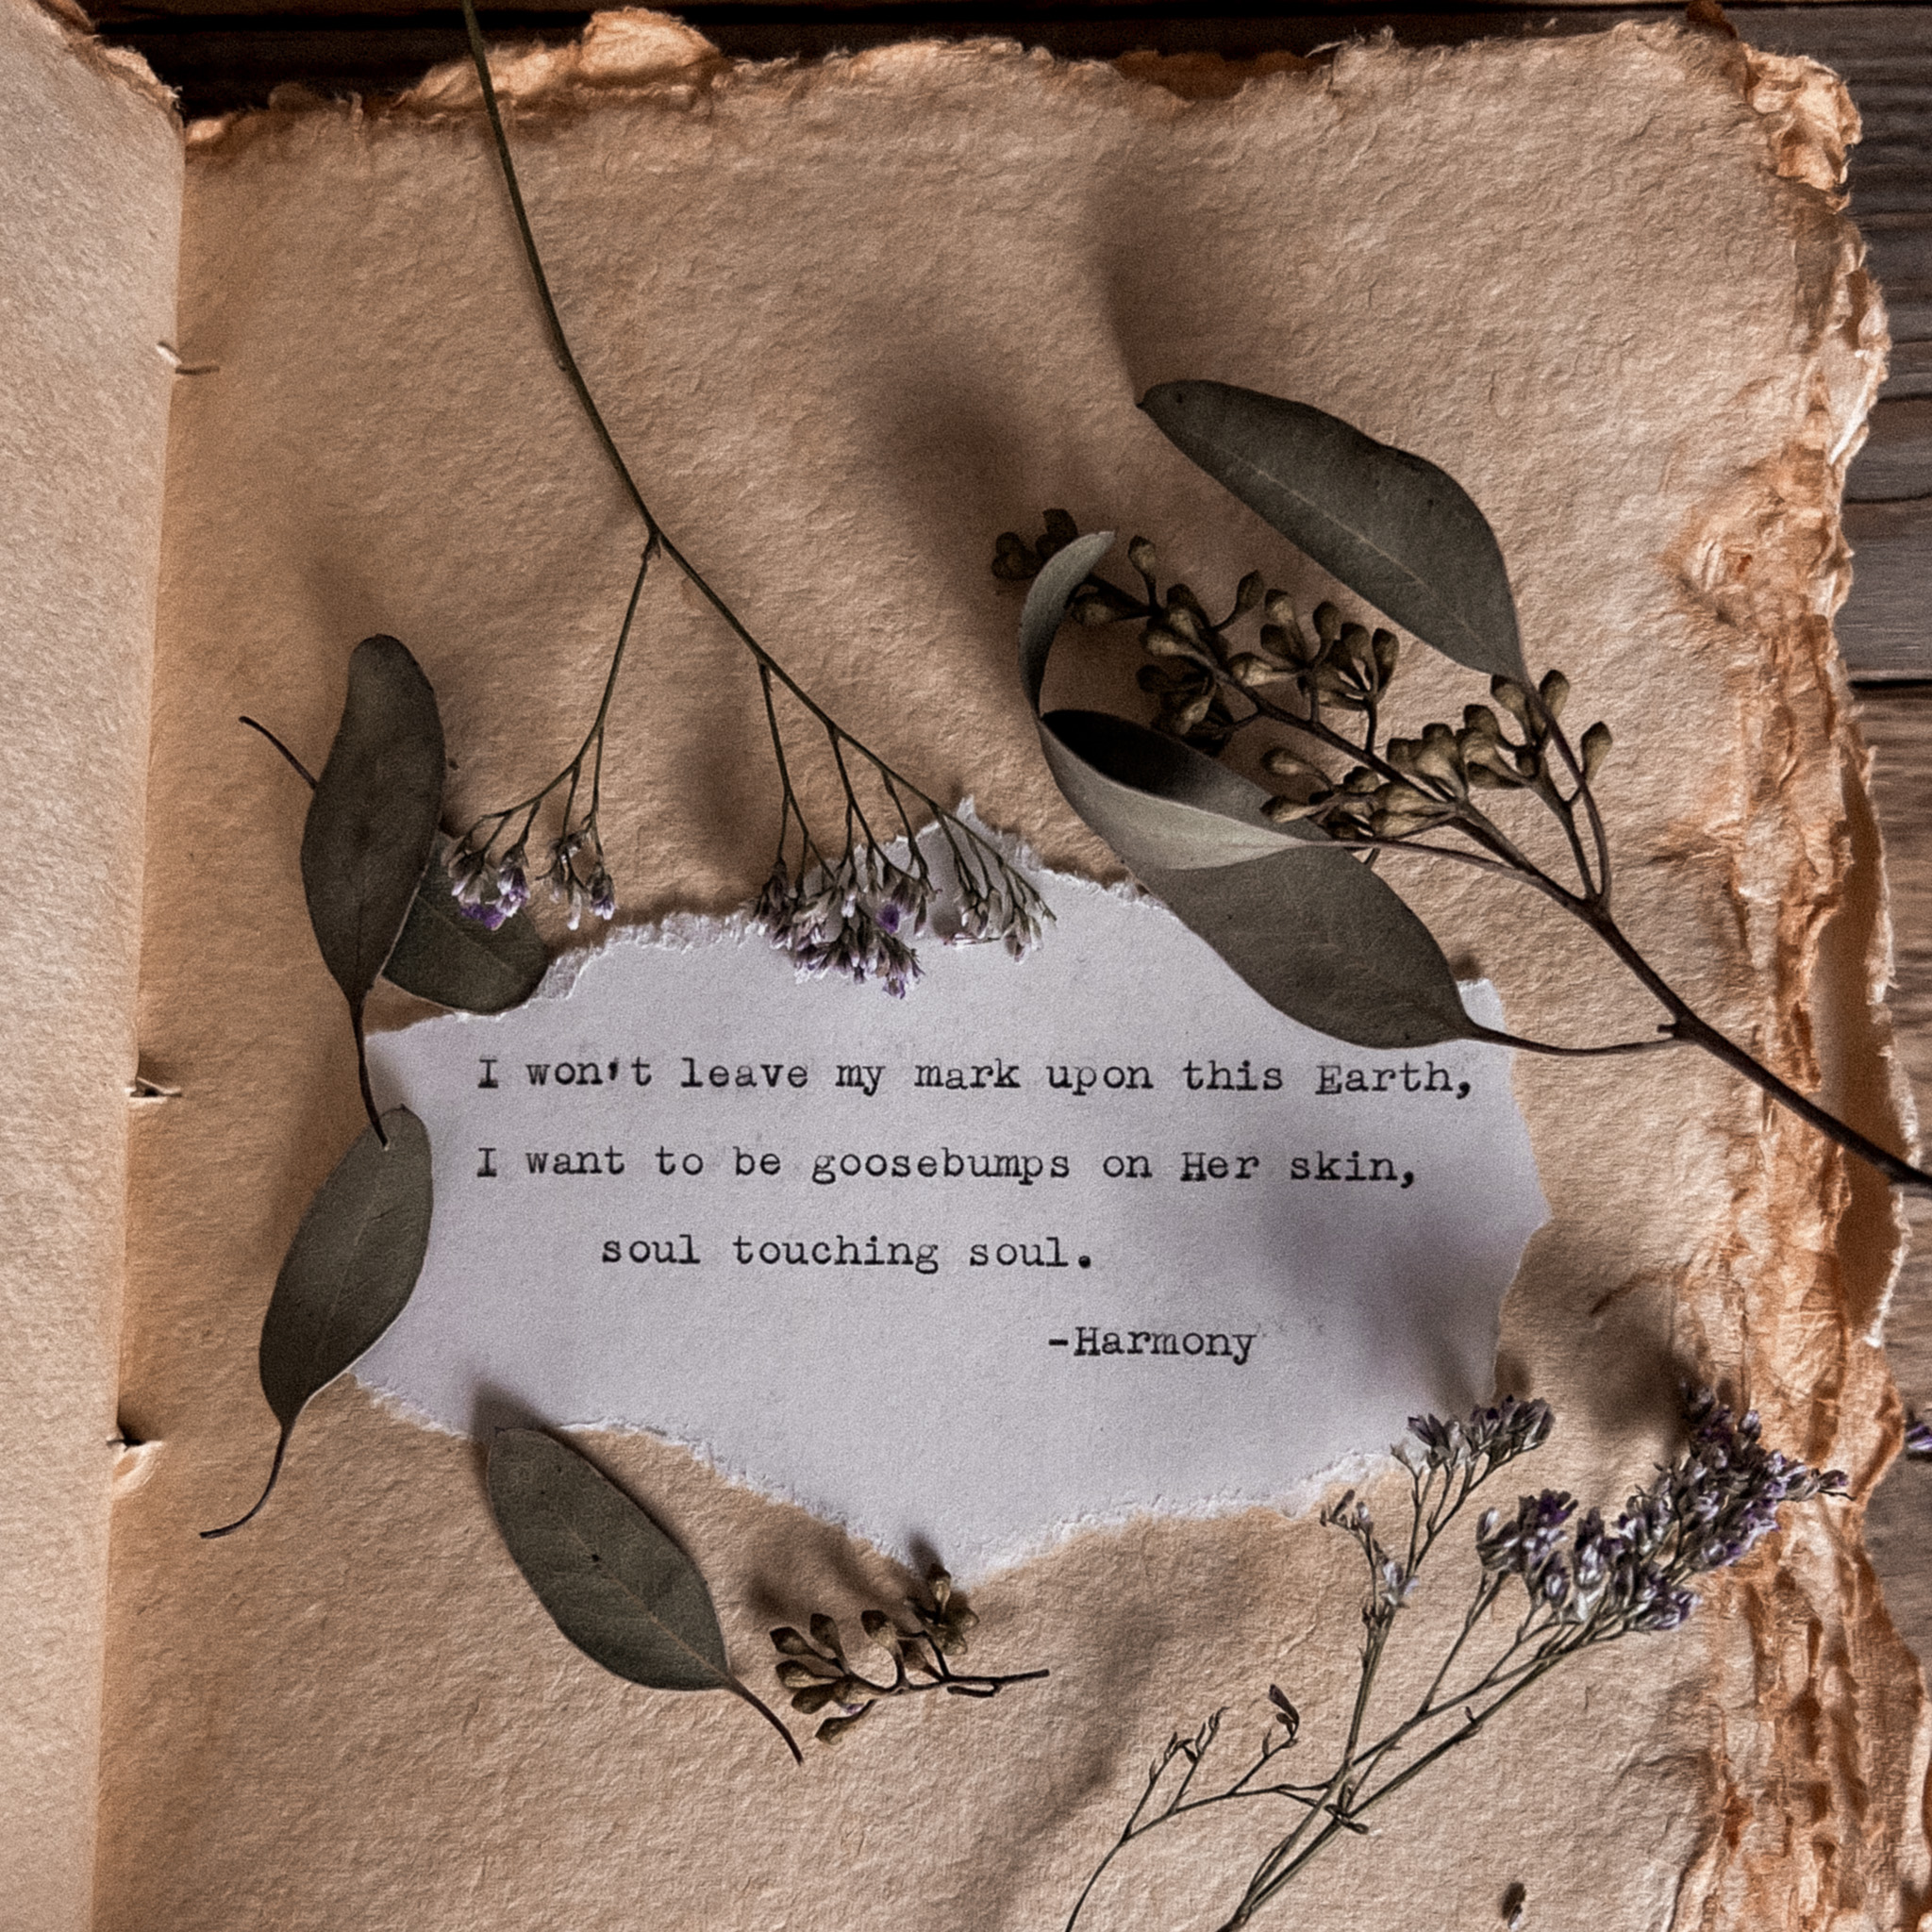 I won't leave my mark upon this Earth,
I want to be goosebumps on Her skin,
soul touching soul.
-Harmony